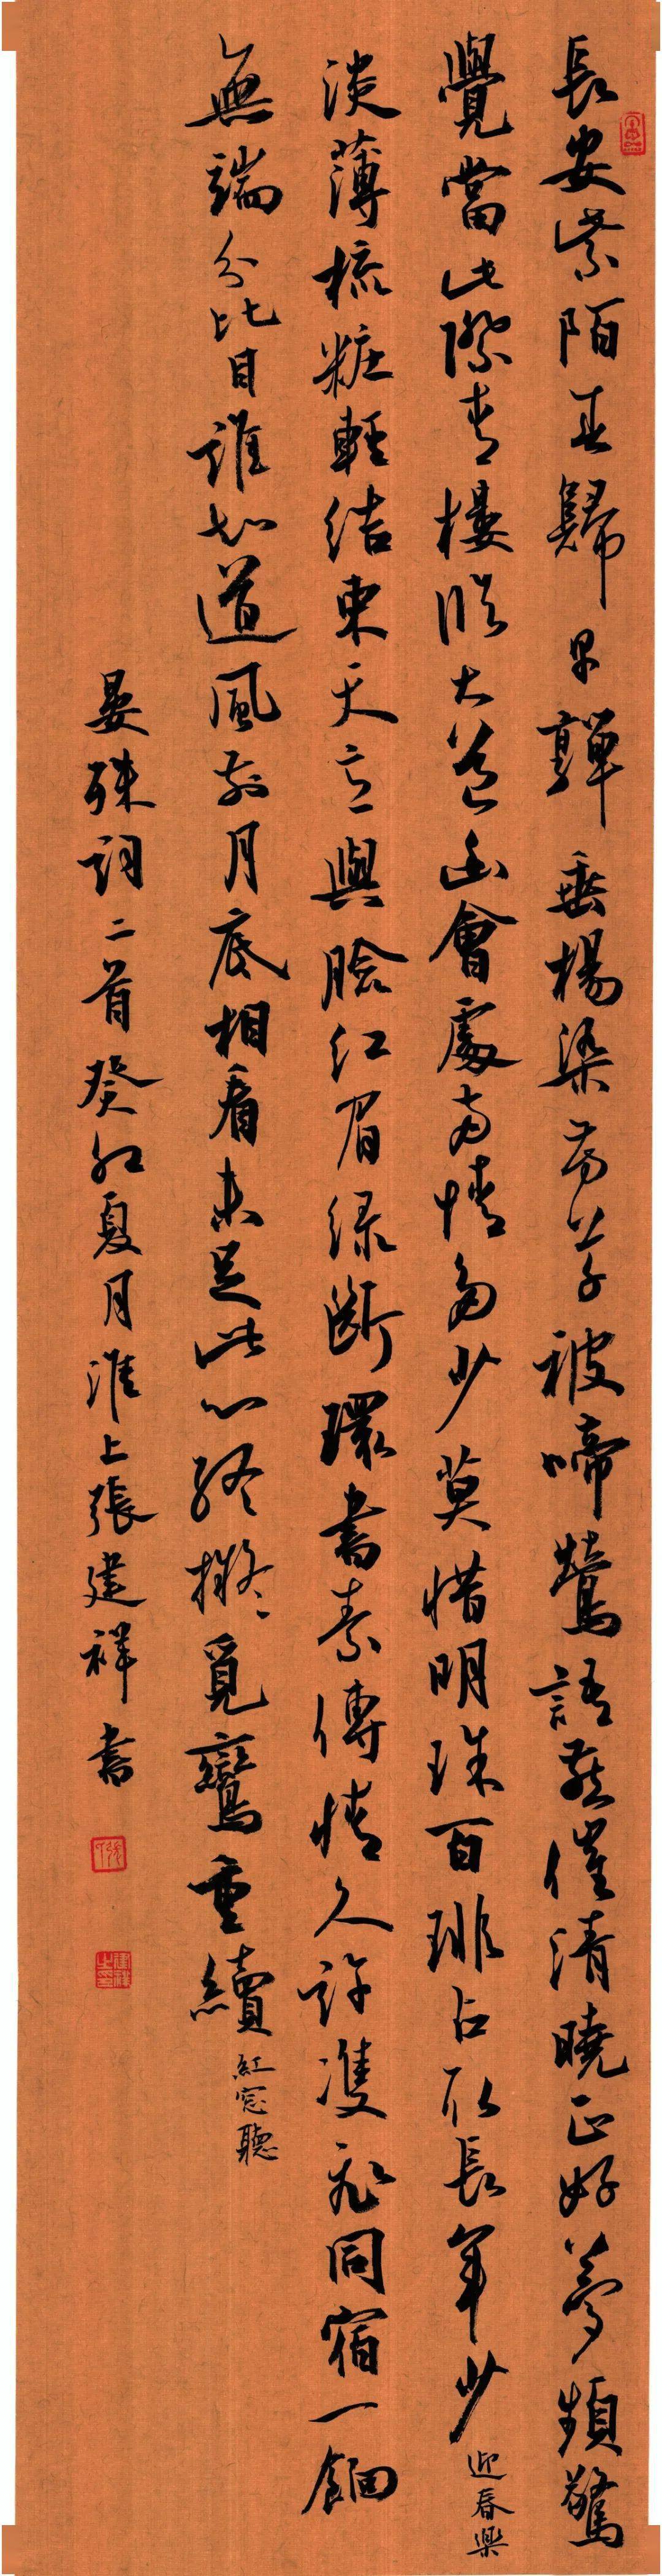 長安紫陌春歸早嚲垂楊染芳草被啼鶯語燕催清曉正好夢頻驚
覺當此際青樓臨大道幽會處兩情多少莫惜明珠百琲占取長年少 迎春樂
淡薄梳粧輕結束天意與臉紅眉綠斷環書素傳情久許雙飛同宿一餉
無端分比目誰知道風前月底相看未足此心終擬覓鸞重續 紅窓聽
晏殊詞二首癸卯夏月淮上張建祥書